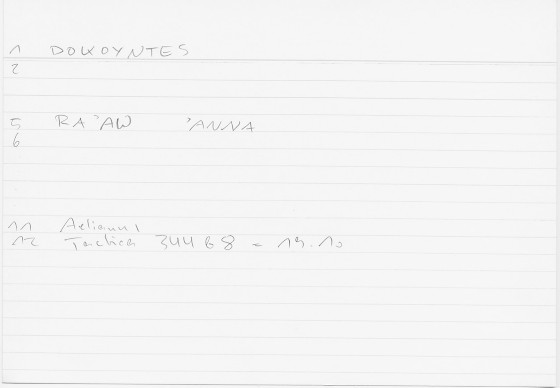 1 DOKOYNTES
2
5 RA`AW 'ANNA
6
11 Aeliani
12 Tactica 344 B 8 - 19.10